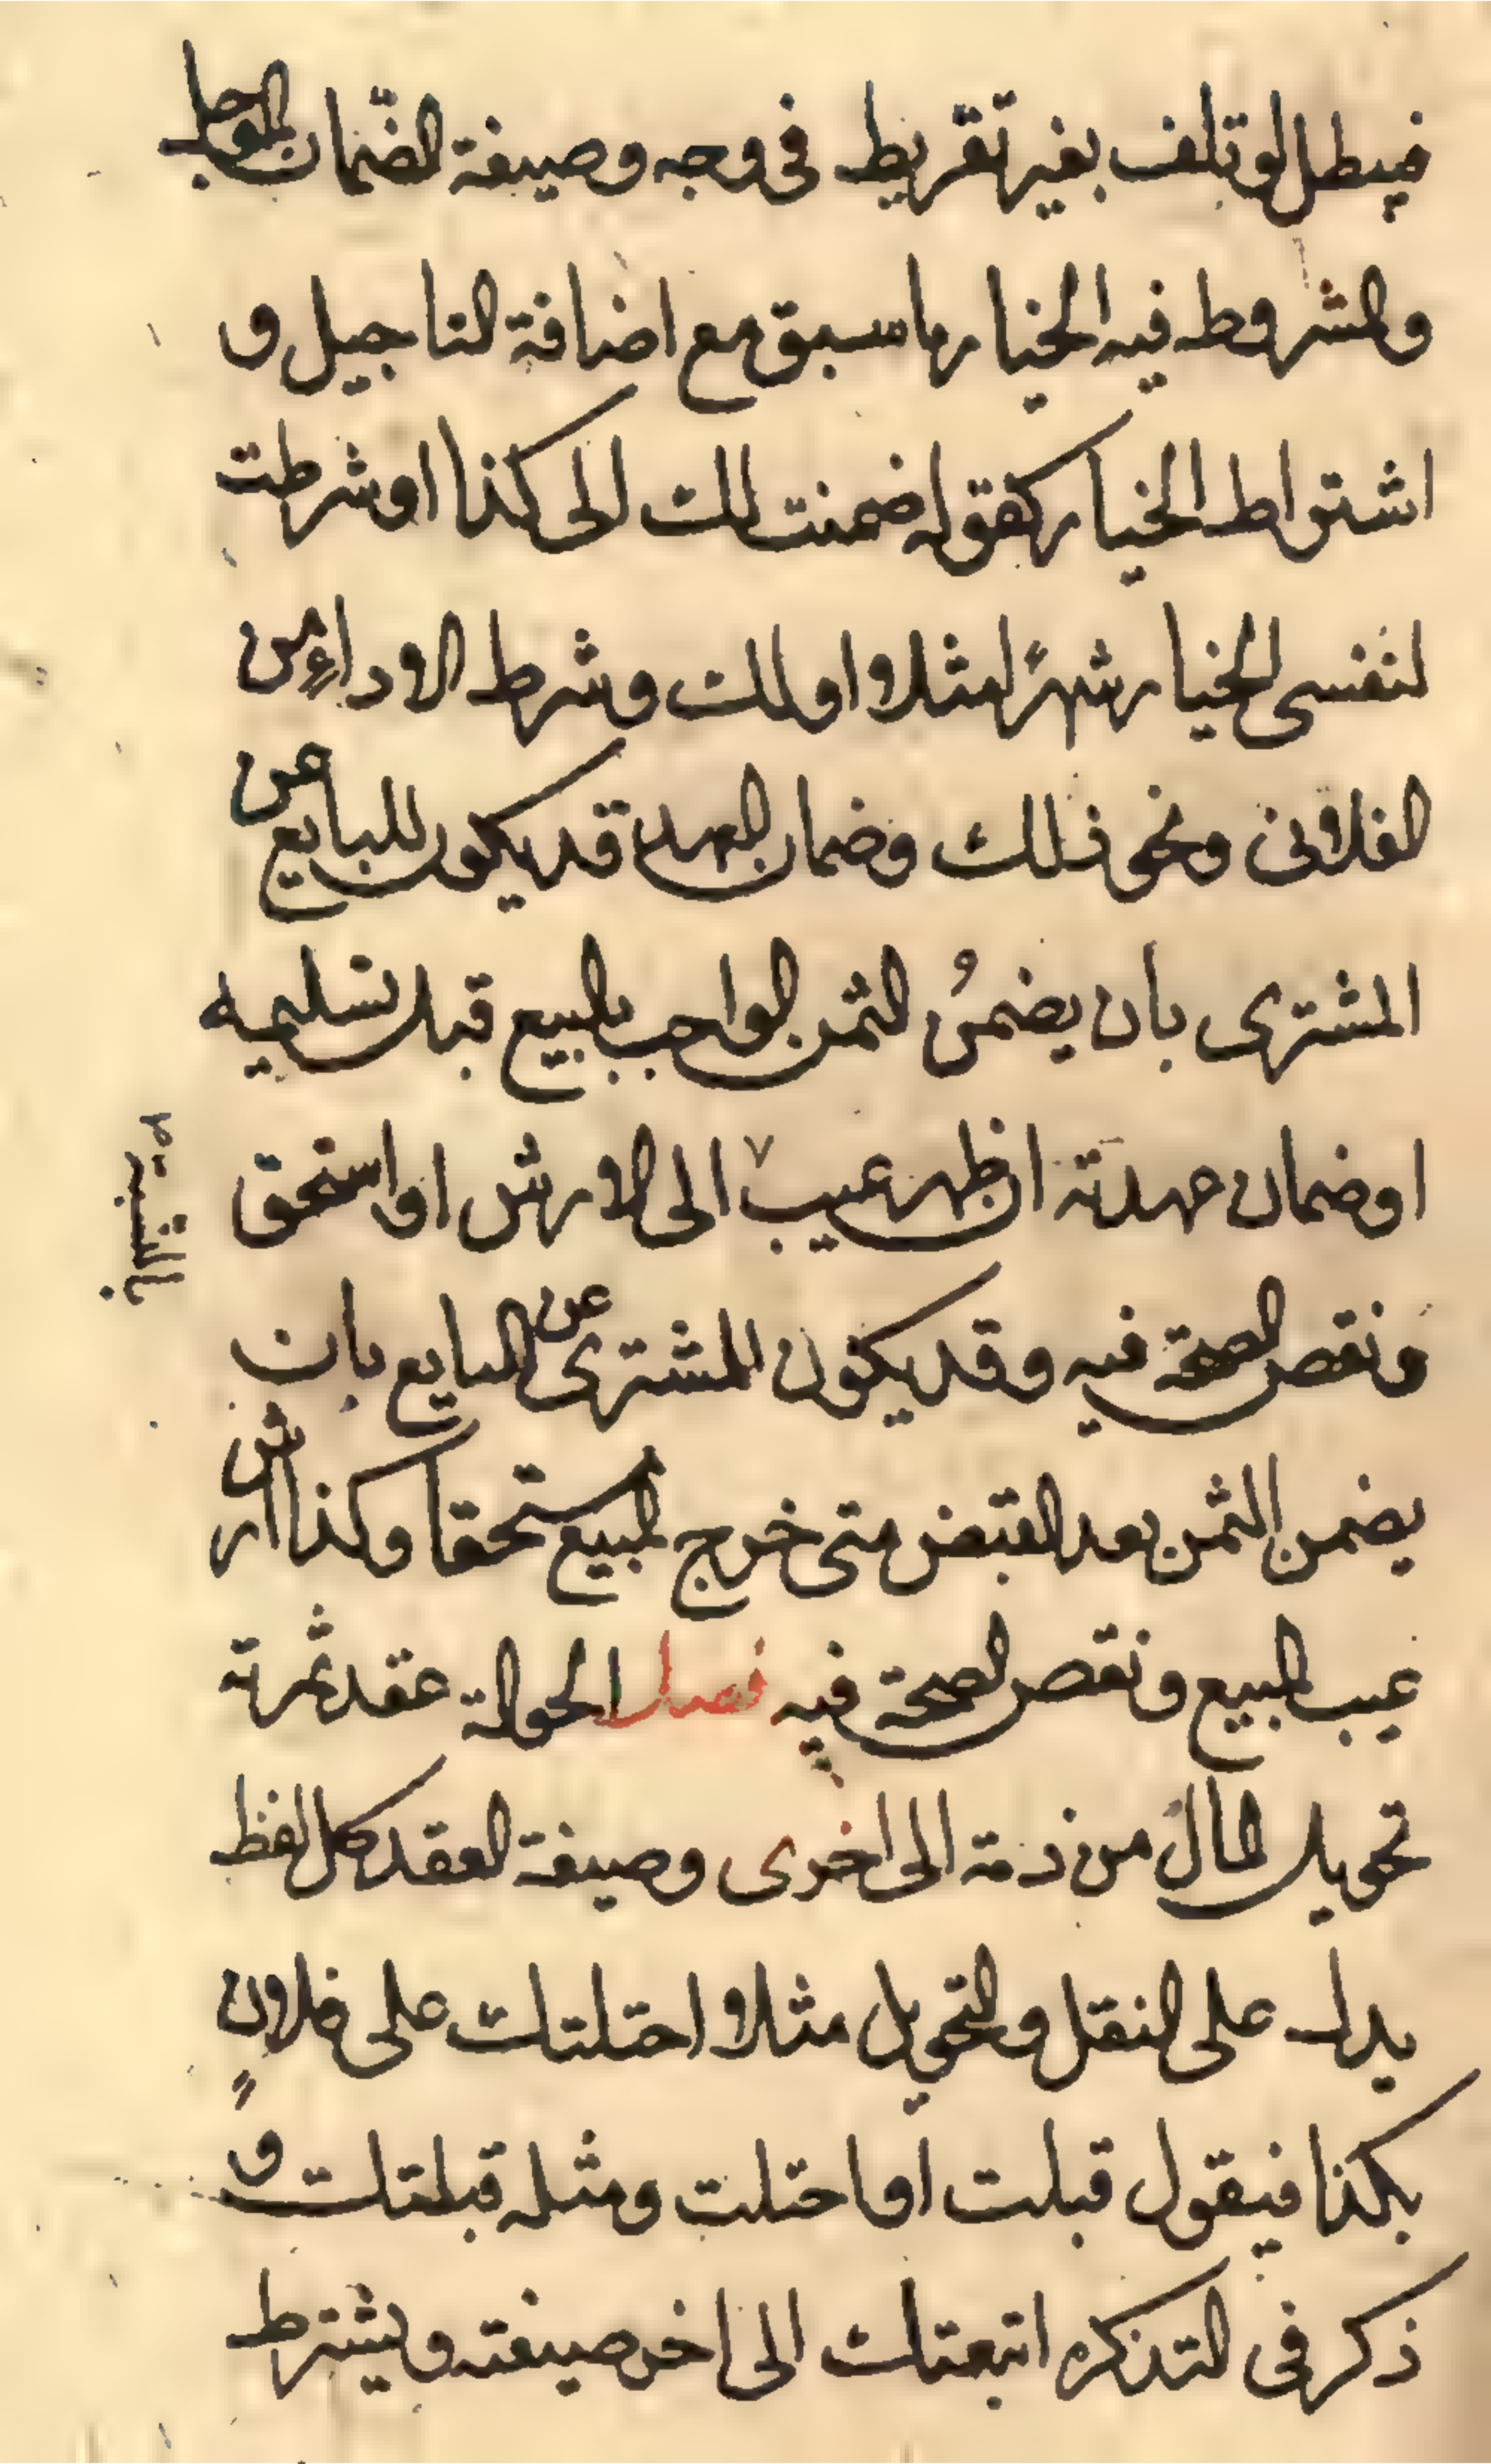 فيبطل لو تلف بغير تفريط في وجه وصيغة الضمان الموجل
والمشروط فيه الخيار ما سبق مع اضافة التاجيل و
اشتراط الخيار كقوله ضمنت لك الى كذا او شرطت
لنفسي الخيار شهرًا مثلا او لك وشرط الاداء من
الفلاني ونحو ذلك وضمان العهدة قد يكون للبايع عن
المشتري بان يضمنُ الثمن الواجب بالبيع قبل تسليمه
او ضمان عهدته ان ظهر عيب ٧ الى الارش او استحق
بالنسبة
ونقص الصحة فيه وقد يكون للمشتري عن البايع بان
يضمن الثمن بعد القبض متى خرج المبيع مستحقا وكذا ارش
عيب المبيع ونقص الصحة فيه فصل الحوالة عقد ثمرته
تحويل المال من ذمة الى اخرى وصيغة العقد كل لفظ
يدل على النقل والتحويل مثلا احتلتك على فلانٍ
بكذا فيقول قبلت او احتلت ومثله قبلتك و
ذكر في التذكره اتبعتك الى اخر صيغته ويشترط